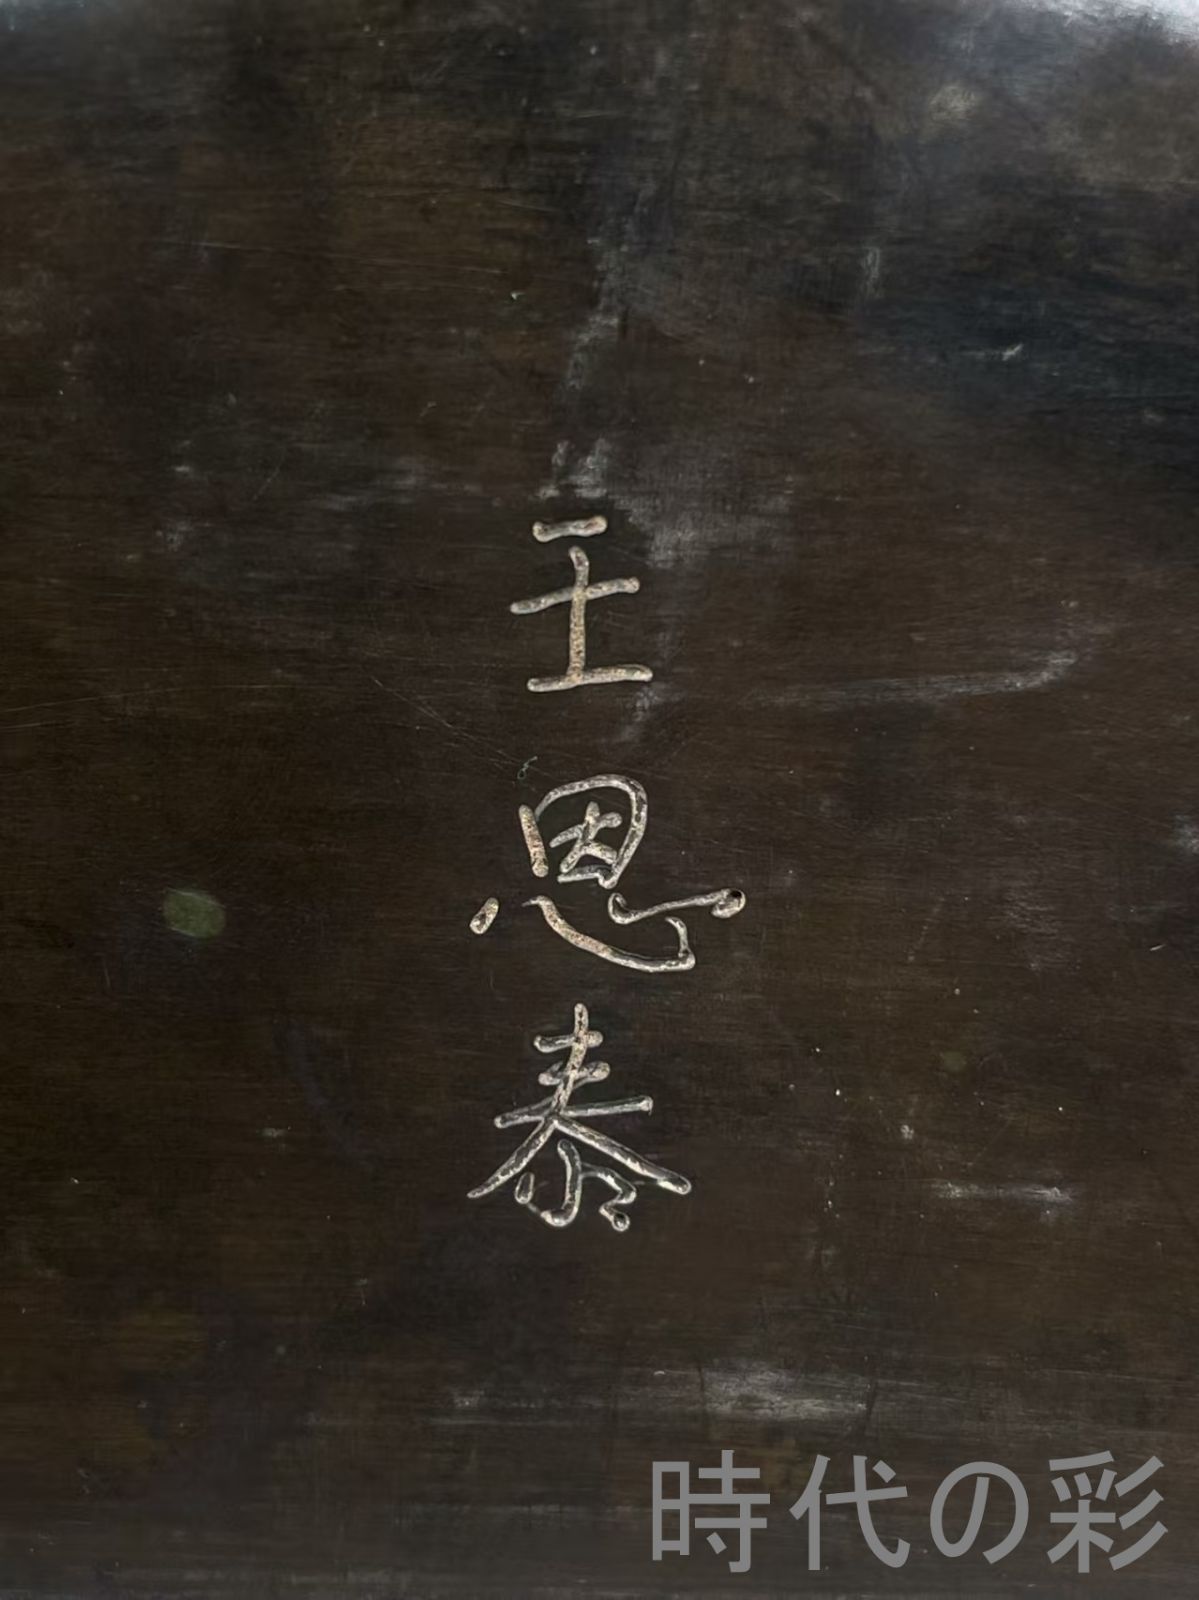 王恩泰
時代の彩